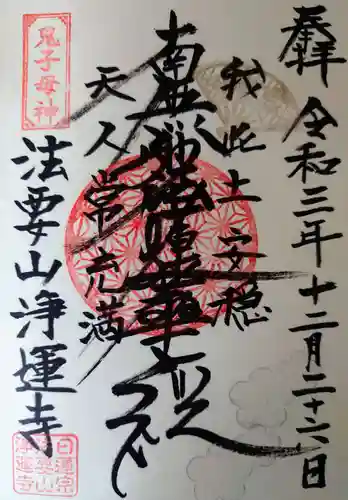 奉拝
令和三年十二月二十六日
我此土安穏
南無妙法蓮華経
天人常充満
鬼子母神
法要山浄運寺
日蓮宗
法要山
浄運寺